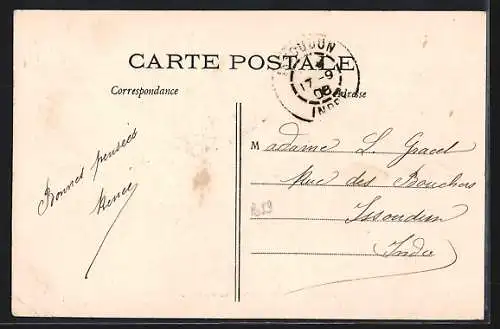 CARTE POSTALE
ISSOUDUN
17-9
08
INDRE
Correspondance
Adresse
Bonnes pensées
Renée
Madame L. Gracel
Rue des Bouchers
Issoudun
(Indre)